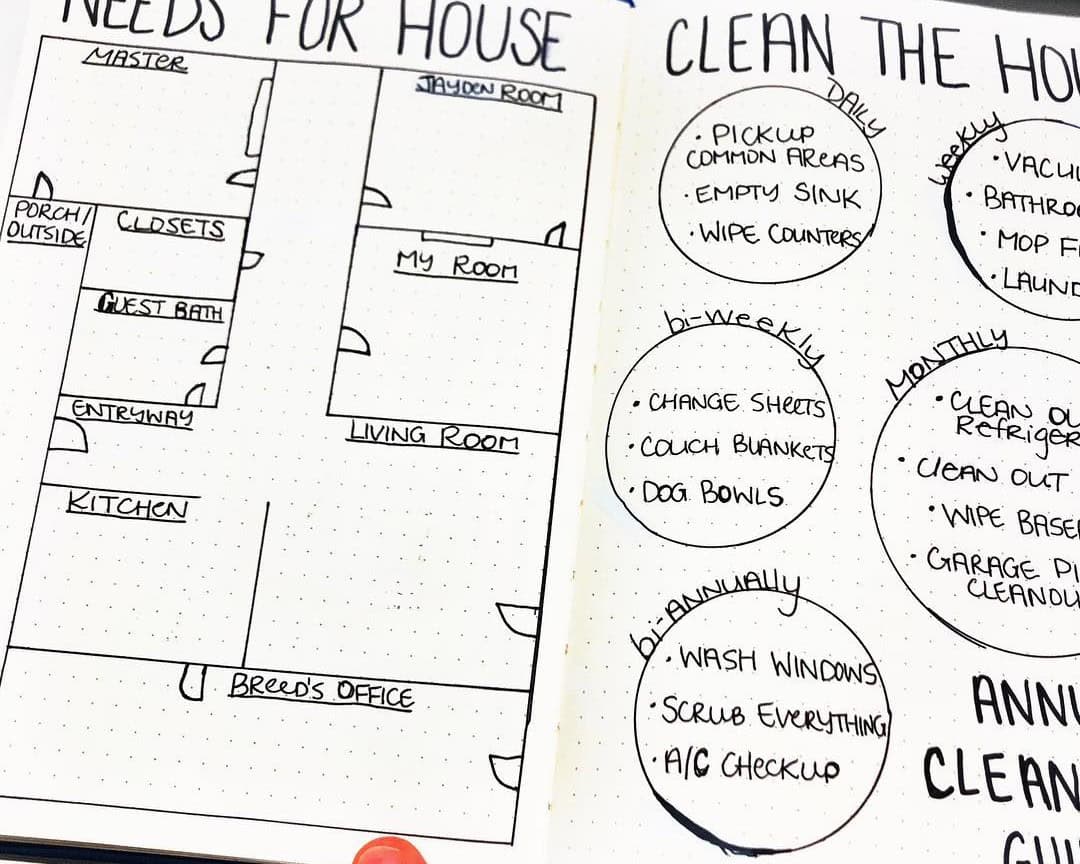 NEEDS FOR HOUSE
MASTER
JAYDEN ROOM
PORCH/
OUTSIDE
CLOSETS
MY ROOM
GUEST BATH
ENTRYWAY
LIVING ROOM
KITCHEN
BREED'S OFFICE
CLEAN THE HOU
DAILY
• PICKUP
COMMON AREAS
• EMPTY SINK
• WIPE COUNTERS
WEEKLY
• VACU
• BATHRO
• MOP F
• LAUND
bi-WEEKLY
• CHANGE SHEETS
• COUCH BLANKETS
• DOG BOWLS
MONTHLY
• CLEAN OU
REFRIGER
• CLEAN OUT
• WIPE BASE
• GARAGE PI
CLEANOU
bi-ANNUALLY
• WASH WINDOWS
• SCRUB EVERYTHING
• A/C CHECKUP
ANNU
CLEAN